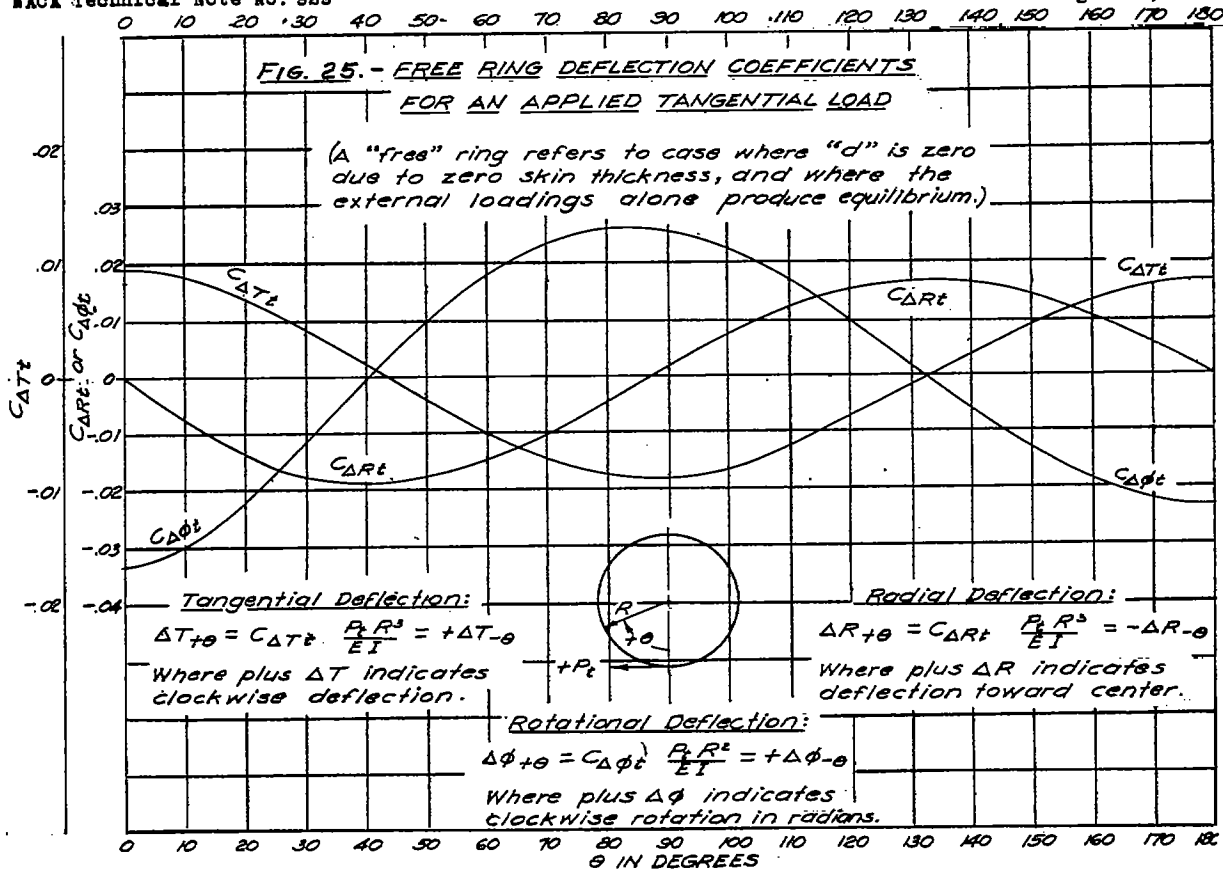 NACA Technical Note No. 925
0 10 20 30 40 50 60 70 80 90 100 110 120 130 140 150 160 170 180
FIG. 25.- FREE RING DEFLECTION COEFFICIENTS
FOR AN APPLIED TANGENTIAL LOAD
(A "free" ring refers to case where "d" is zero
due to zero skin thickness, and where the
external loadings alone produce equilibrium.)
.02
.01
0
-.01
-.02
C_ΔTt
.03
.02
.01
0
-.01
-.02
-.03
-.04
C_ΔRt or C_Δϕt
C_ΔTt
C_ΔRt
C_Δϕt
C_ΔRt
C_ΔTt
C_Δϕt
Tangential Deflection:
ΔT+θ = C_ΔTt PtR³/EI = +ΔT-θ
Where plus ΔT indicates
clockwise deflection.
R
+θ
+Pt
Radial Deflection:
ΔR+θ = C_ΔRt PtR³/EI = -ΔR-θ
Where plus ΔR indicates
deflection toward center.
Rotational Deflection:
Δϕ+θ = C_Δϕt PtR²/EI = +Δϕ-θ
Where plus Δϕ indicates
clockwise rotation in radians.
0 10 20 30 40 50 60 70 80 90 100 110 120 130 140 150 160 170 180
θ IN DEGREES